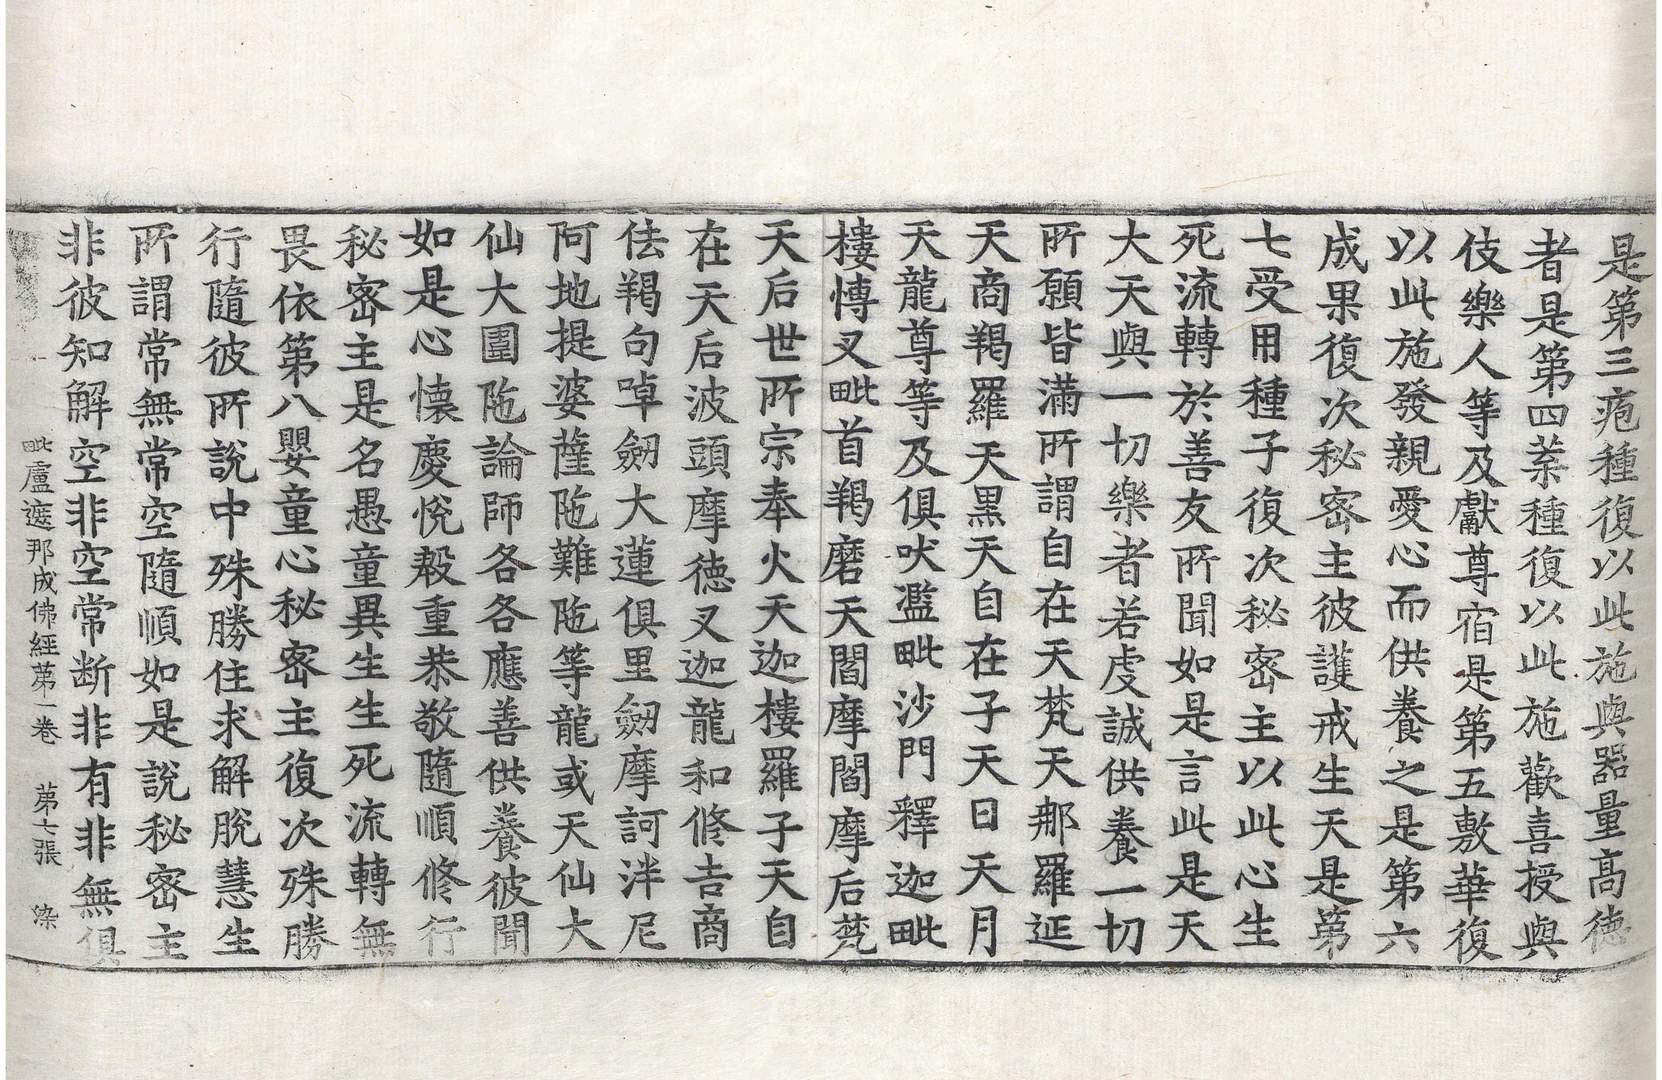 是第三疱種復以此施與器量高德
者是第四葉種復以此施歡喜授與
伎樂人等及獻尊宿是第五敷華復
以此施發親愛心而供養之是第六
成果復次秘密主彼護戒生天是第
七受用種子復次秘密主以此心生
死流轉於善友所聞如是言此是天
大天與一切樂者若虔誠供養一切
所願皆滿所謂自在天梵天那羅延
天商羯羅天黑天自在子天日天月
天龍尊等及俱吠濫毗沙門釋迦毗
樓愽叉毗首羯磨天閻摩閻摩后梵
天后世所宗奉火天迦樓羅子天自
在天后波頭摩德叉迦龍和修吉商
佉羯句啅劒大蓮俱里劒摩訶泮尼
阿地提婆薩陁難陁等龍或天仙大
仙大圍陁論師各各應善供養彼聞
如是心懷慶悅殷重恭敬隨順修行
秘密主是名愚童異生生死流轉無
畏依第八嬰童心秘密主復次殊勝
行隨彼所說中殊勝住求解脫慧生
所謂常無常空隨順如是說秘密主
非彼知解空非空常斷非有非無俱
毗盧遮那成佛經第一卷 第七張 染